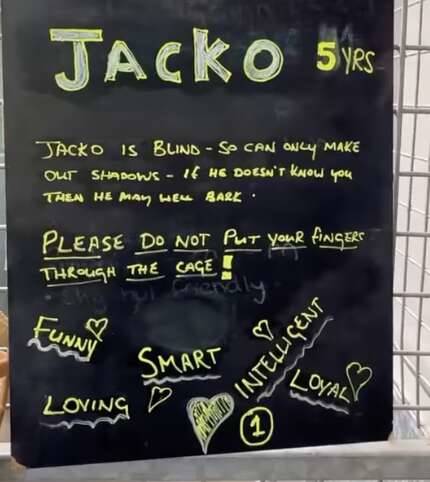 JACKO 5 YRS
JACKO IS BLIND - SO CAN ONLY MAKE
OUT SHADOWS - IF HE DOESN'T KNOW YOU
THEN HE MAY WELL BARK.
PLEASE DO NOT PUT YOUR FINGERS
THROUGH THE CAGE!
FUNNY
SMART
INTELLIGENT
LOVING
LOYAL
1